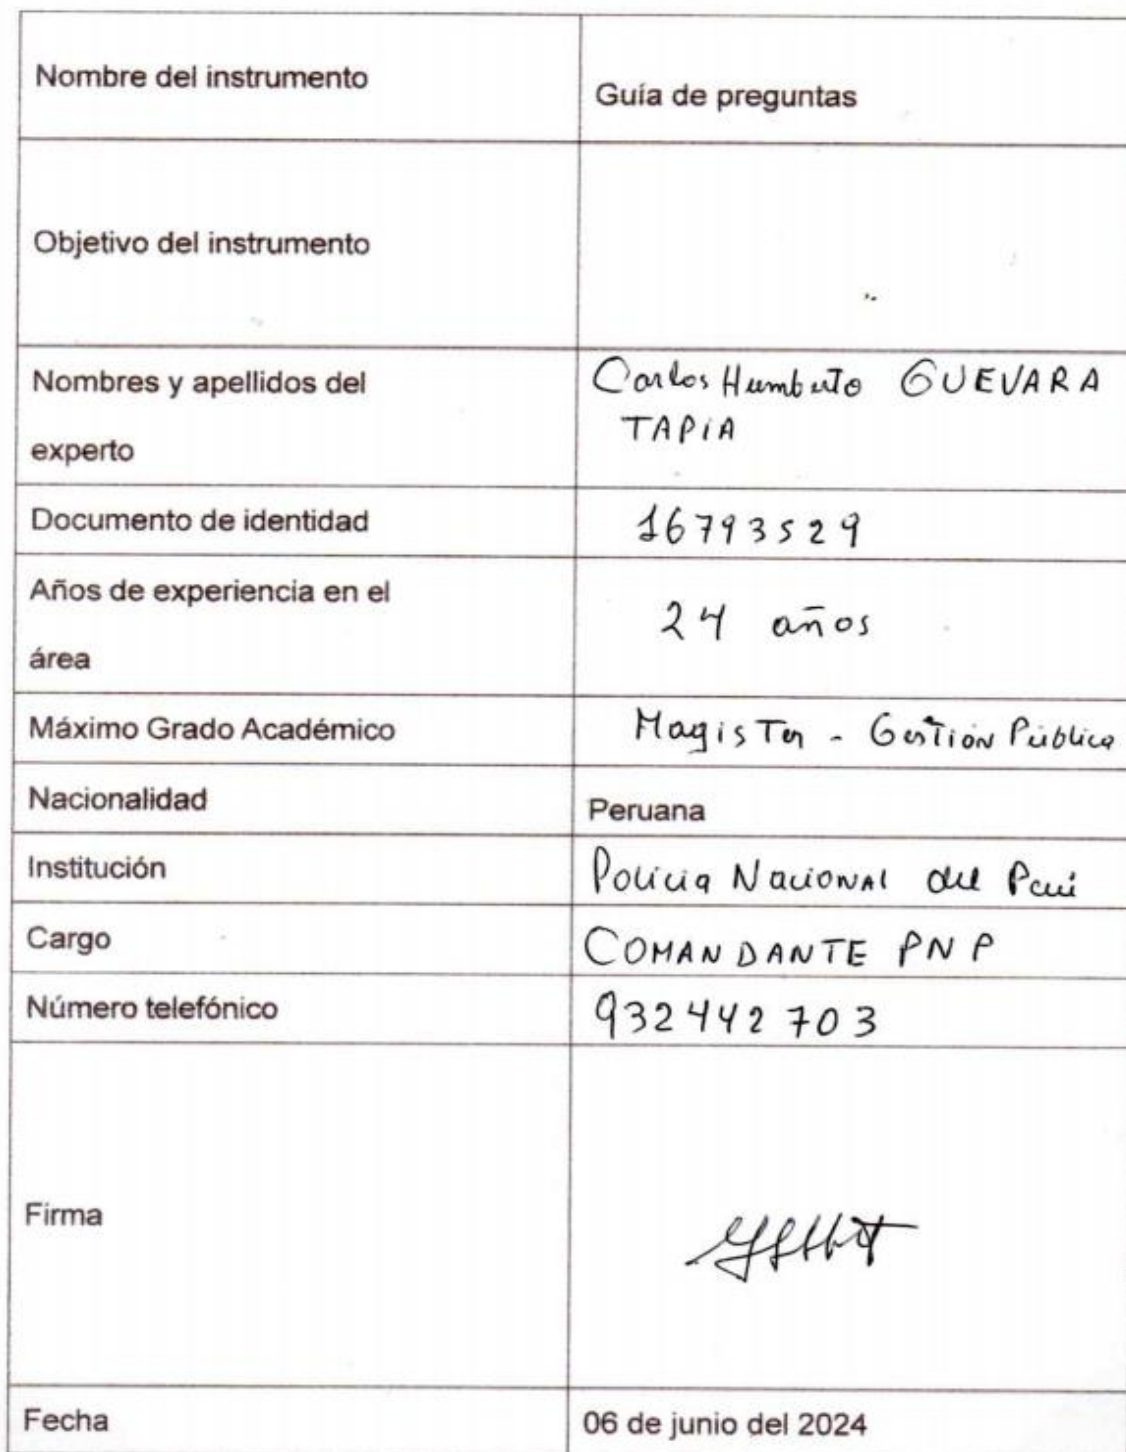 Nombre del instrumento
Guía de preguntas
Objetivo del instrumento
Nombres y apellidos del
experto
Carlos Humberto GUEVARA
TAPIA
Documento de identidad
16793529
Años de experiencia en el
área
24 años
Máximo Grado Académico
Magister - Gestión Pública
Nacionalidad
Peruana
Institución
Policia Nacional del Perú
Cargo
COMANDANTE PNP
Número telefónico
932442703
Firma
Fecha
06 de junio del 2024